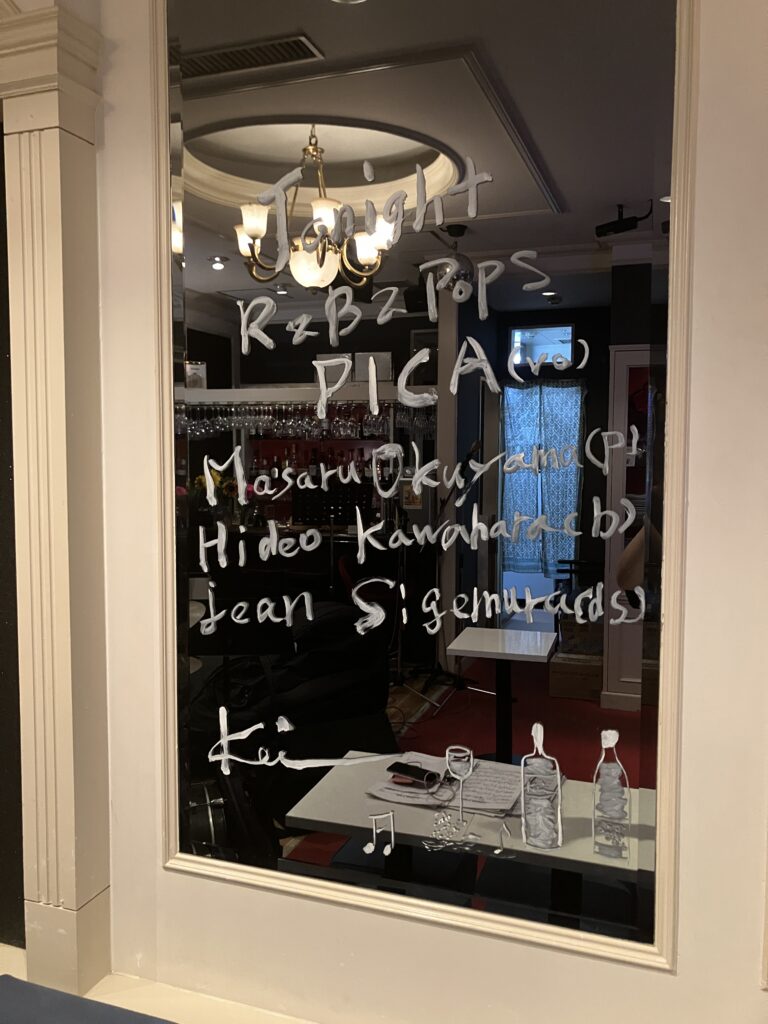 Tonight
R&B2POPS
PICA(vo)
Masaru Okuyama(P)
Hideo Kawahara(b)
jean Sigemura(ds)
Kei